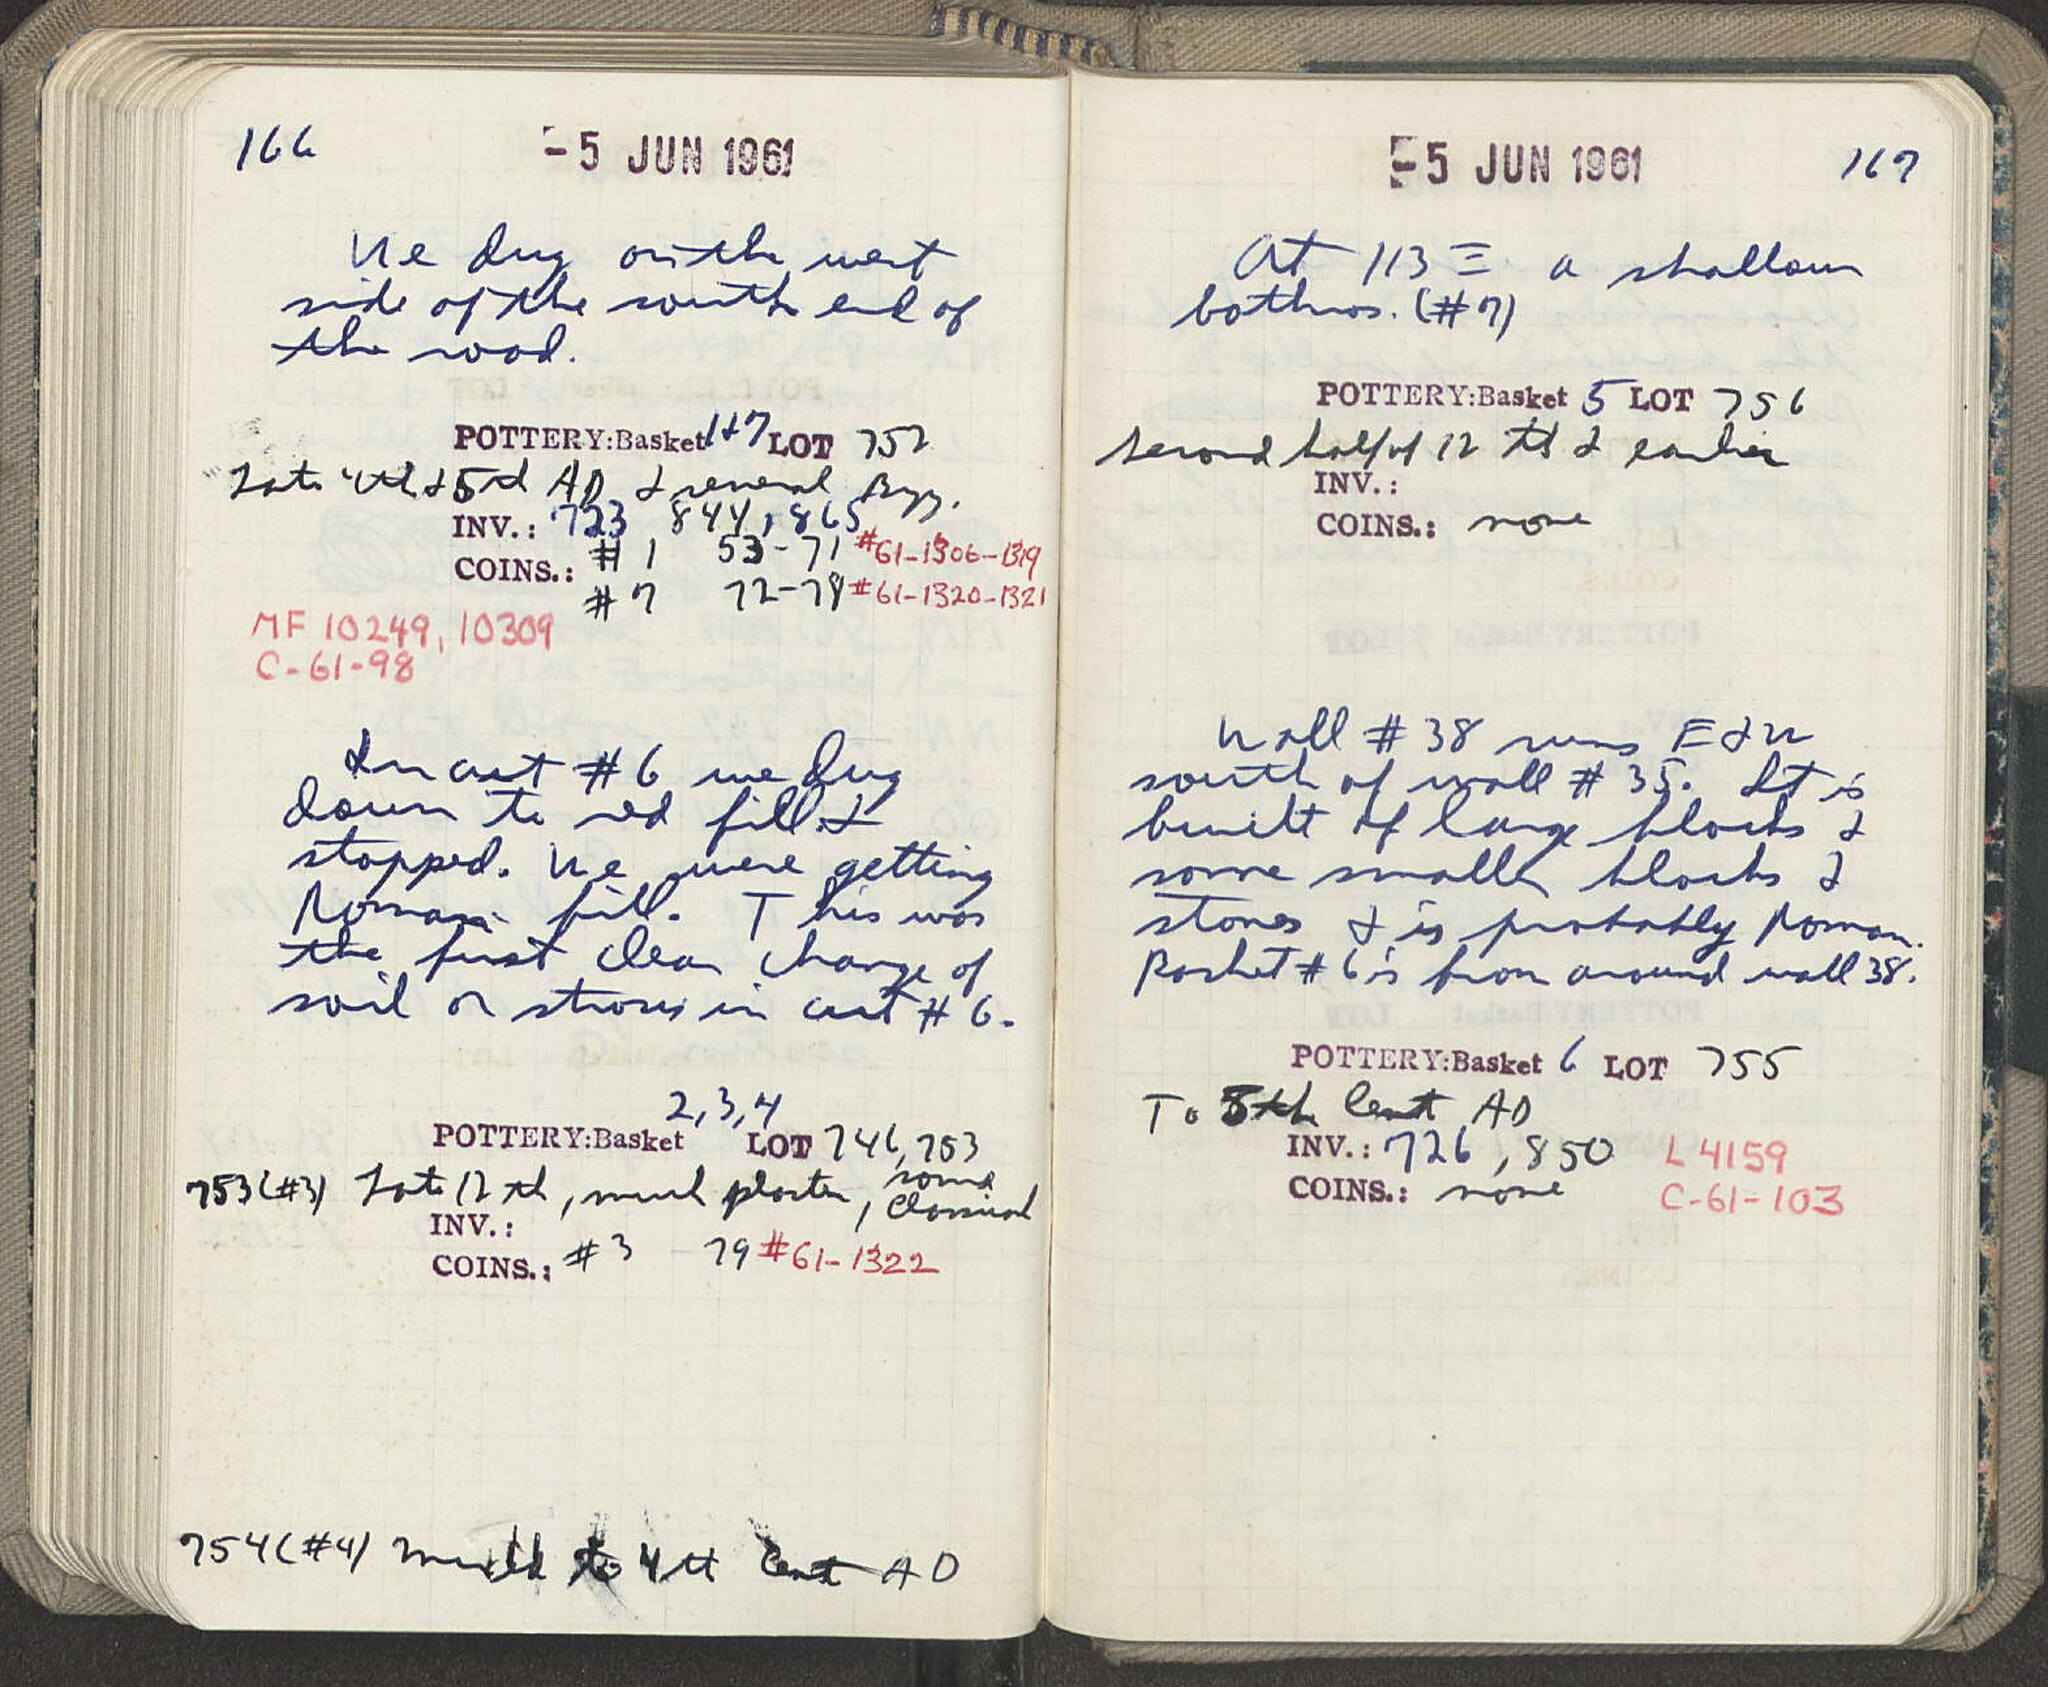 166
-5 JUN 1961
We dug on the west
side of the south end of
the road.
POTTERY:Basket 1+7 LOT 752
Late 4th & 5th AD & several Byz.
INV.: 723 844, 865
COINS.: #1 53-71 #61-1306-1319
#7 72-78 #61-1320-1321
MF 10249, 10309
C-61-98
In cut #6 we dug
down to red fill &
stopped. We were getting
Roman fill. This was
the first clear change of
soil or strosis in cut #6.
POTTERY:Basket 2,3,4 LOT 746, 753
753(#3) Late 12th, much plaster, some Classical
INV.:
COINS.: #3 79 #61-1322
754(#4) to 4th Cent AD
-5 JUN 1961
167
At 113 Ξ a shallow
bothros. (#7)
POTTERY:Basket 5 LOT 756
Second half of 12 th & earlier
INV.:
COINS.: none
Wall #38 runs E & W
south of wall #35. It is
built of large blocks &
some smaller blocks &
stones & is probably Roman.
Basket #6 is from around wall 38.
POTTERY:Basket 6 LOT 755
To 5th Cent AD
INV.: 726, 850 L 4159
COINS.: none C-61-103